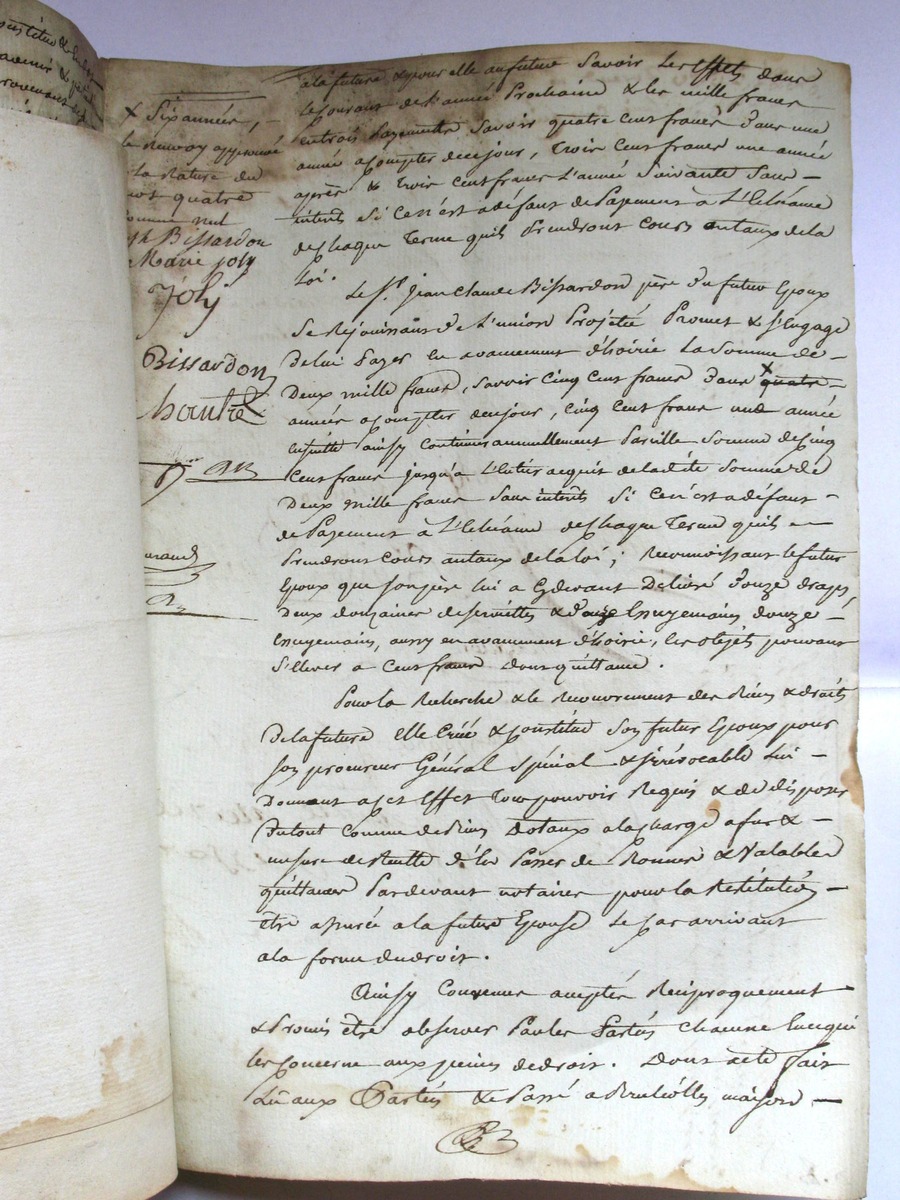 X Six années, -
le renvoy approuvé
la rature du
mot quatre
comme nul
Bissardon
Marie joly
Joly
Bissardon
à la future & pour elle au future Savoir les Effets dans
le Courant de l'année prochaine & les mille francs
en trois payements Savoir quatre cent francs dans une
année a Compter de ce jour, trois Cent francs une année
après & trois Cent francs l'année Suivante Sans -
interets Si Ce n'est a défaut de payement a L'Echéance
de Chaque terme qu'ils prendront Cours au taux de la
Loi.
Le Sr. jean Claude Bissardon père du futur Epoux
Se Rejouissant de L'union Projetée Promet & S'Engage
De lui payer En avancement d'hoirie La Somme de -
Deux mille francs, Savoir cinq Cent francs dans quatre -
années a Compter de ce jour, cinq Cent francs une année
Ensuitte ainsy Continuer annuellement Pareille Somme de Cinq
Cent francs jusqu'à L'Entier acquis de la dite Somme de
Deux mille francs Sans interets Si Ce n'est a défaut -
de Payement a L'Echéance de Chaque Terme qu'ils -
Prendront Cours au taux de la Loi ; Reconnoissant le futur
Epoux que Son père lui a Cydevant Délivré Douze draps,
Deux douzaines de serviettes & Douze Essuyemains douze -
Essuyemains, aussy en avancement d'hoirie, les objets pouvant
S'Elever a Cent francs Dont quittance.
Pour la Recherche & le Recouvrement des Biens & droits
De la future Elle Crée & Constitue Son futur Epoux pour
Son procureur Général Spécial & irrévocable Lui -
Donnant a Cet Effet Tout pouvoir Requis & de disposer
Du tout Comme de Biens Dotaux a la Charge a fur &
mesure de Recette d'En Passer de Bonnes & Valables
quittances Pardevant notaires pour la Restitution -
être assurée a la future Epouse le Cas arrivant
a la forme du droit.
Ainsy Convenu accepté Réciproquement
& Promis être observer Par les Parties Chacune En ce qui
les Concerne aux peines de droit. Dont acte fait
Lu aux Parties & Passé a maison -